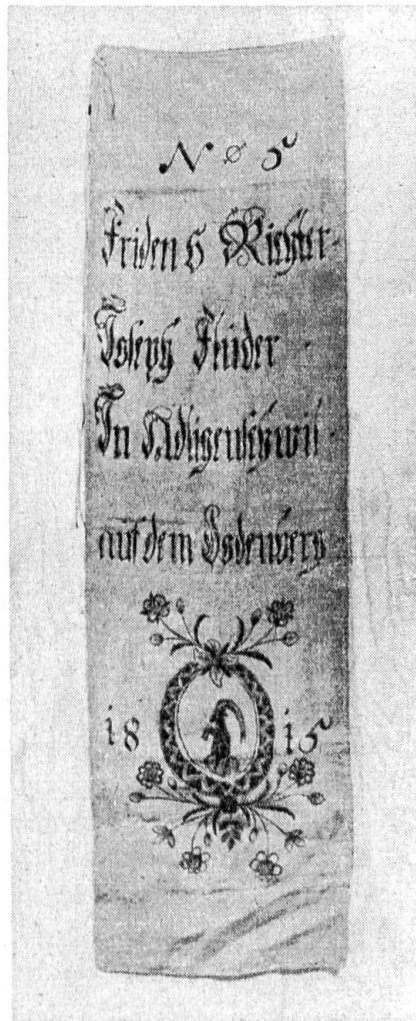 Nº 5
Friden s Richter
Joseph
In Adligenschwil
auf dem Dodenberg
18 15